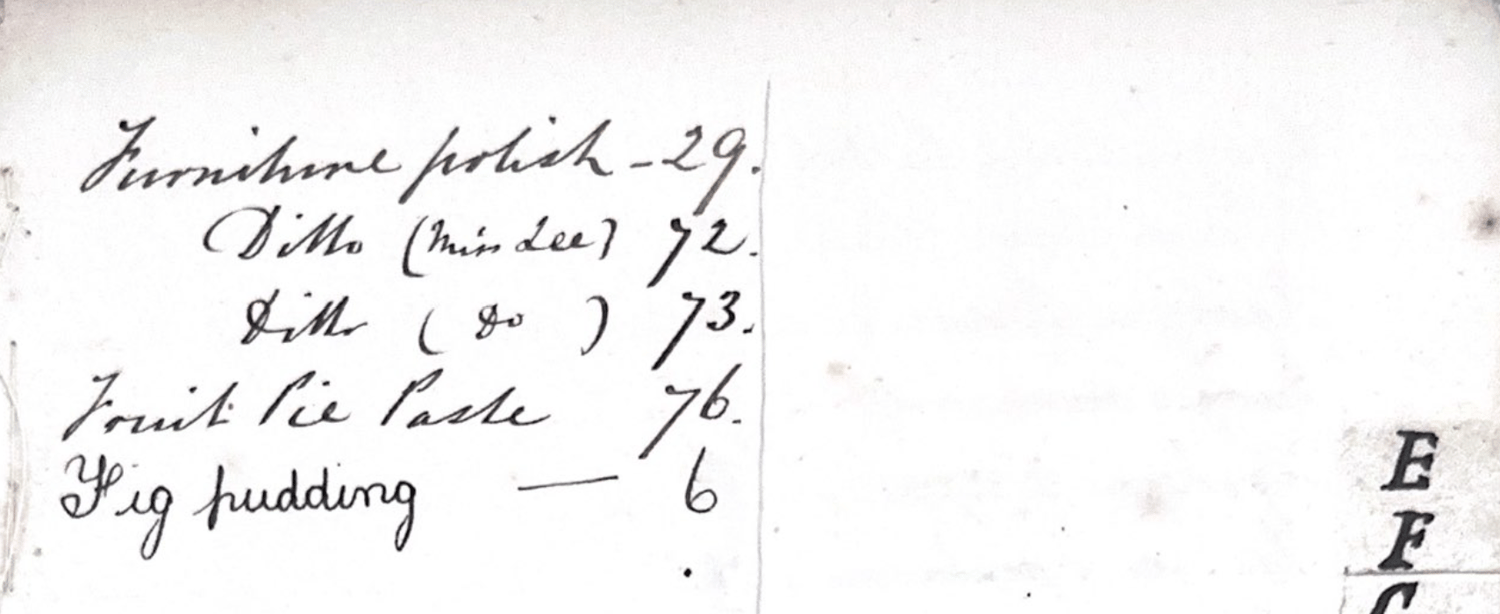 Furniture polish - 29.
Ditto (Miss Lee) 72.
Ditto ( Do ) 73.
Fruit Pie Paste 76.
Fig pudding — 6
E
F
G